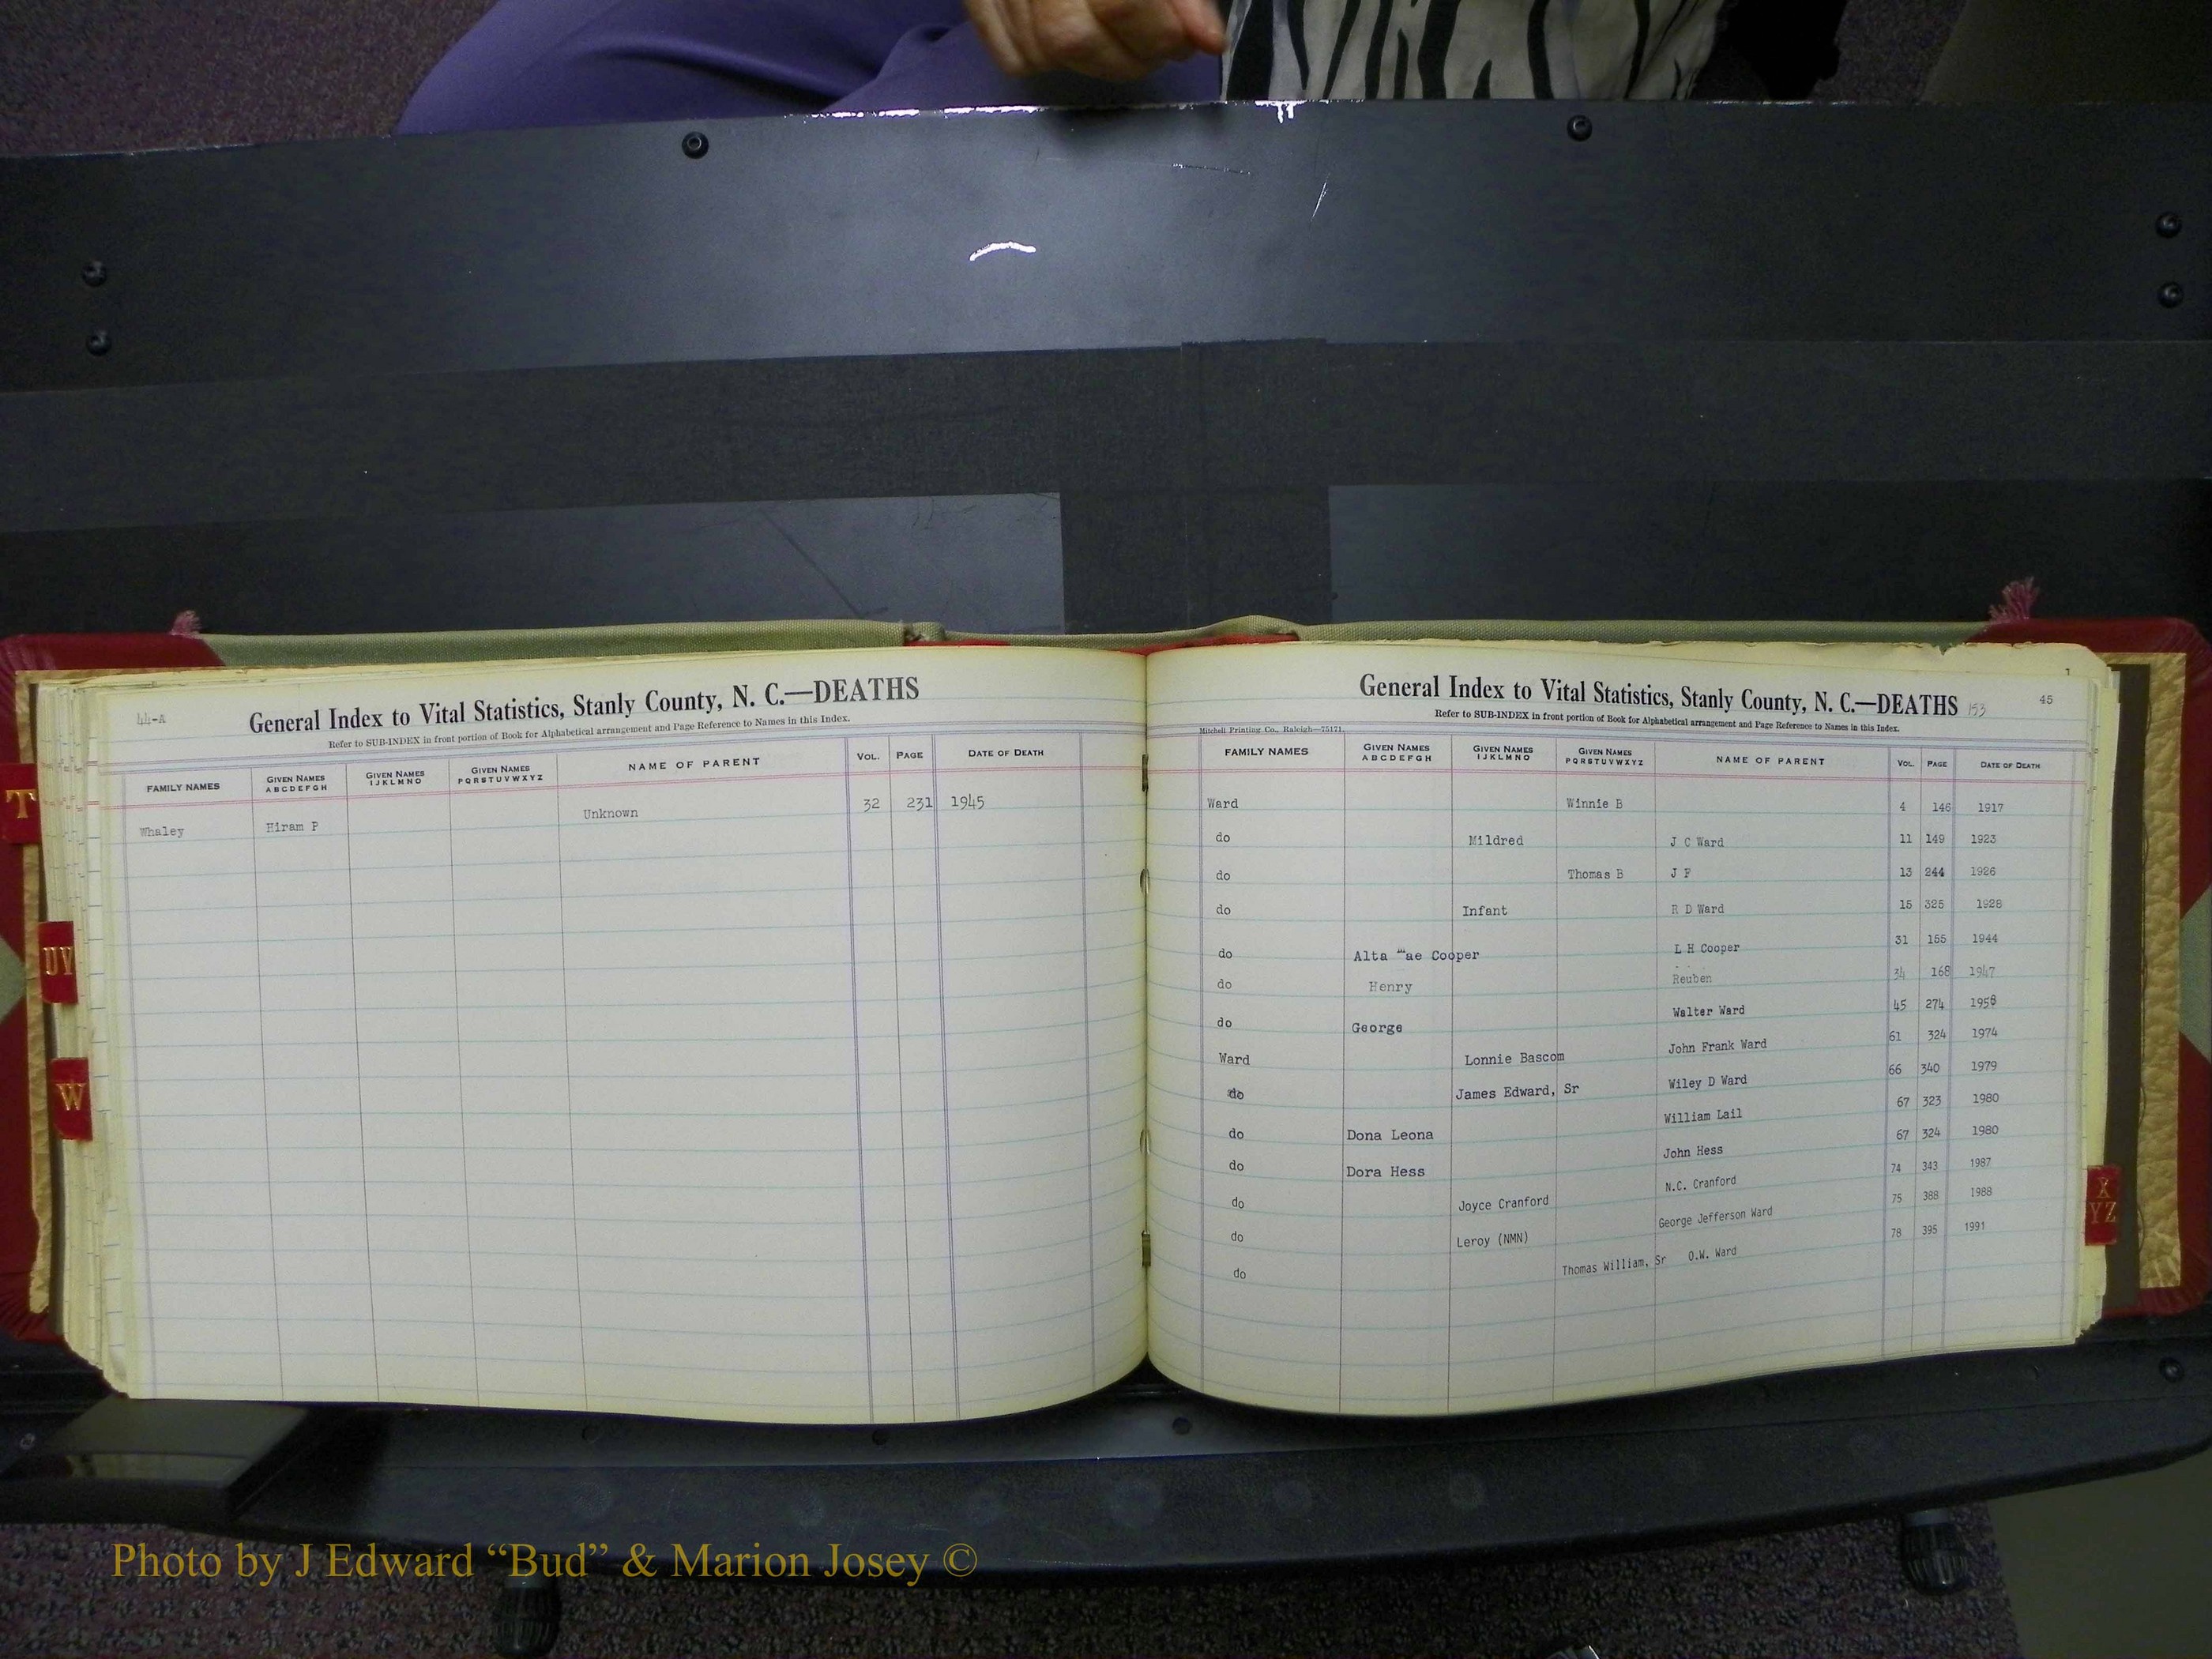 44-A
General Index to Vital Statistics, Stanly County, N. C.—DEATHS
Refer to SUB-INDEX in front portion of Book for Alphabetical arrangement and Page Reference to Names in this Index.
FAMILY NAMES GIVEN NAMES ABCDEFGH GIVEN NAMES IJKLMNO GIVEN NAMES PQRSTUVWXYZ NAME OF PARENT VOL. PAGE DATE OF DEATH
Whaley Hiram P Unknown 32 231 1945
T
UV
W
General Index to Vital Statistics, Stanly County, N. C.—DEATHS 153 45
Refer to SUB-INDEX in front portion of Book for Alphabetical arrangement and Page Reference to Names in this Index.
Mitchell Printing Co., Raleigh—75171
FAMILY NAMES GIVEN NAMES ABCDEFGH GIVEN NAMES IJKLMNO GIVEN NAMES PQRSTUVWXYZ NAME OF PARENT VOL. PAGE DATE OF DEATH
Ward Winnie B 4 146 1917
do Mildred J C Ward 11 149 1923
do Thomas B J F 13 244 1926
do Infant R D Ward 15 325 1928
do Alta Mae Cooper L H Cooper 31 155 1944
do Henry Reuben 34 168 1947
do George Walter Ward 45 274 1958
Ward Lonnie Bascom John Frank Ward 61 324 1974
do James Edward, Sr Wiley D Ward 66 340 1979
do Dona Leona William Lail 67 323 1980
do Dora Hess John Hess 67 324 1980
do Joyce Cranford N.C. Cranford 74 343 1987
do Leroy (NMN) George Jefferson Ward 75 388 1988
do Thomas William, Sr O.W. Ward 78 395 1991
X
YZ
Photo by J Edward “Bud” & Marion Josey ©